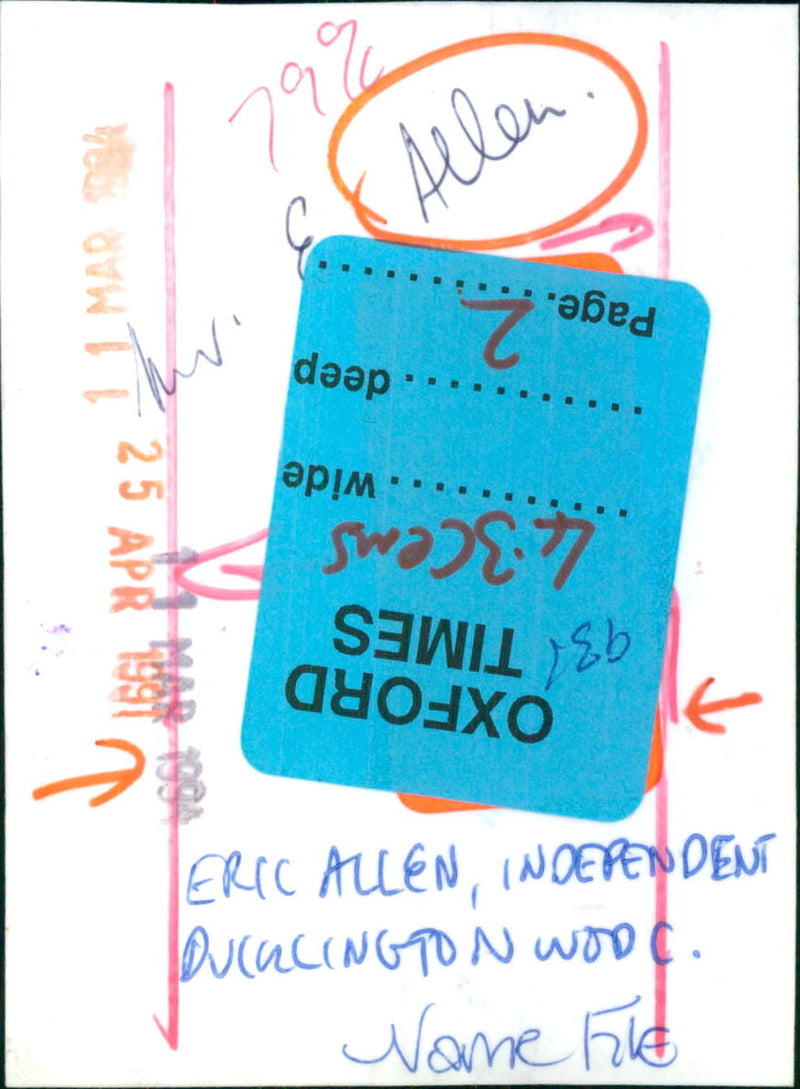 79%
Allen.
Mr. E
Page..........
2
.......... deep
.......... wide
4.3cems
OXFORD
TIMES
11 MAR
25 APR 1991
11 MAR 1994
ERIC ALLEN, INDEPENDENT
DUCKLINGTON WODC.
Name File